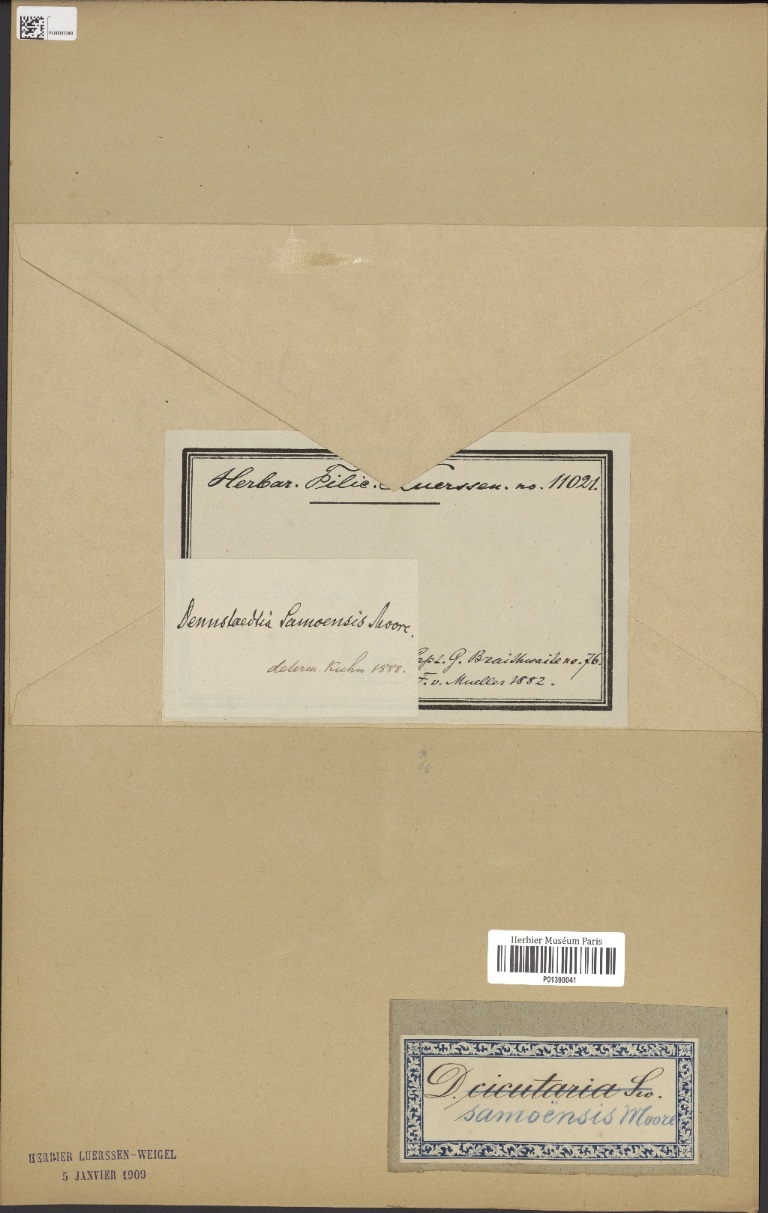 Herbar. Filic. Luerssen. no. 11021.
Dennstaedtia Samoensis Moore.
determ. Kuhn 1888.
Capt. G. Braithwaite no. 76.
F. v. Mueller 1882.
Herbier Muséum Paris
P01390041
D. cicutaria Sw.
samoënsis Moore
HERBIER LUERSSEN-WEIGEL
5 JANVIER 1909